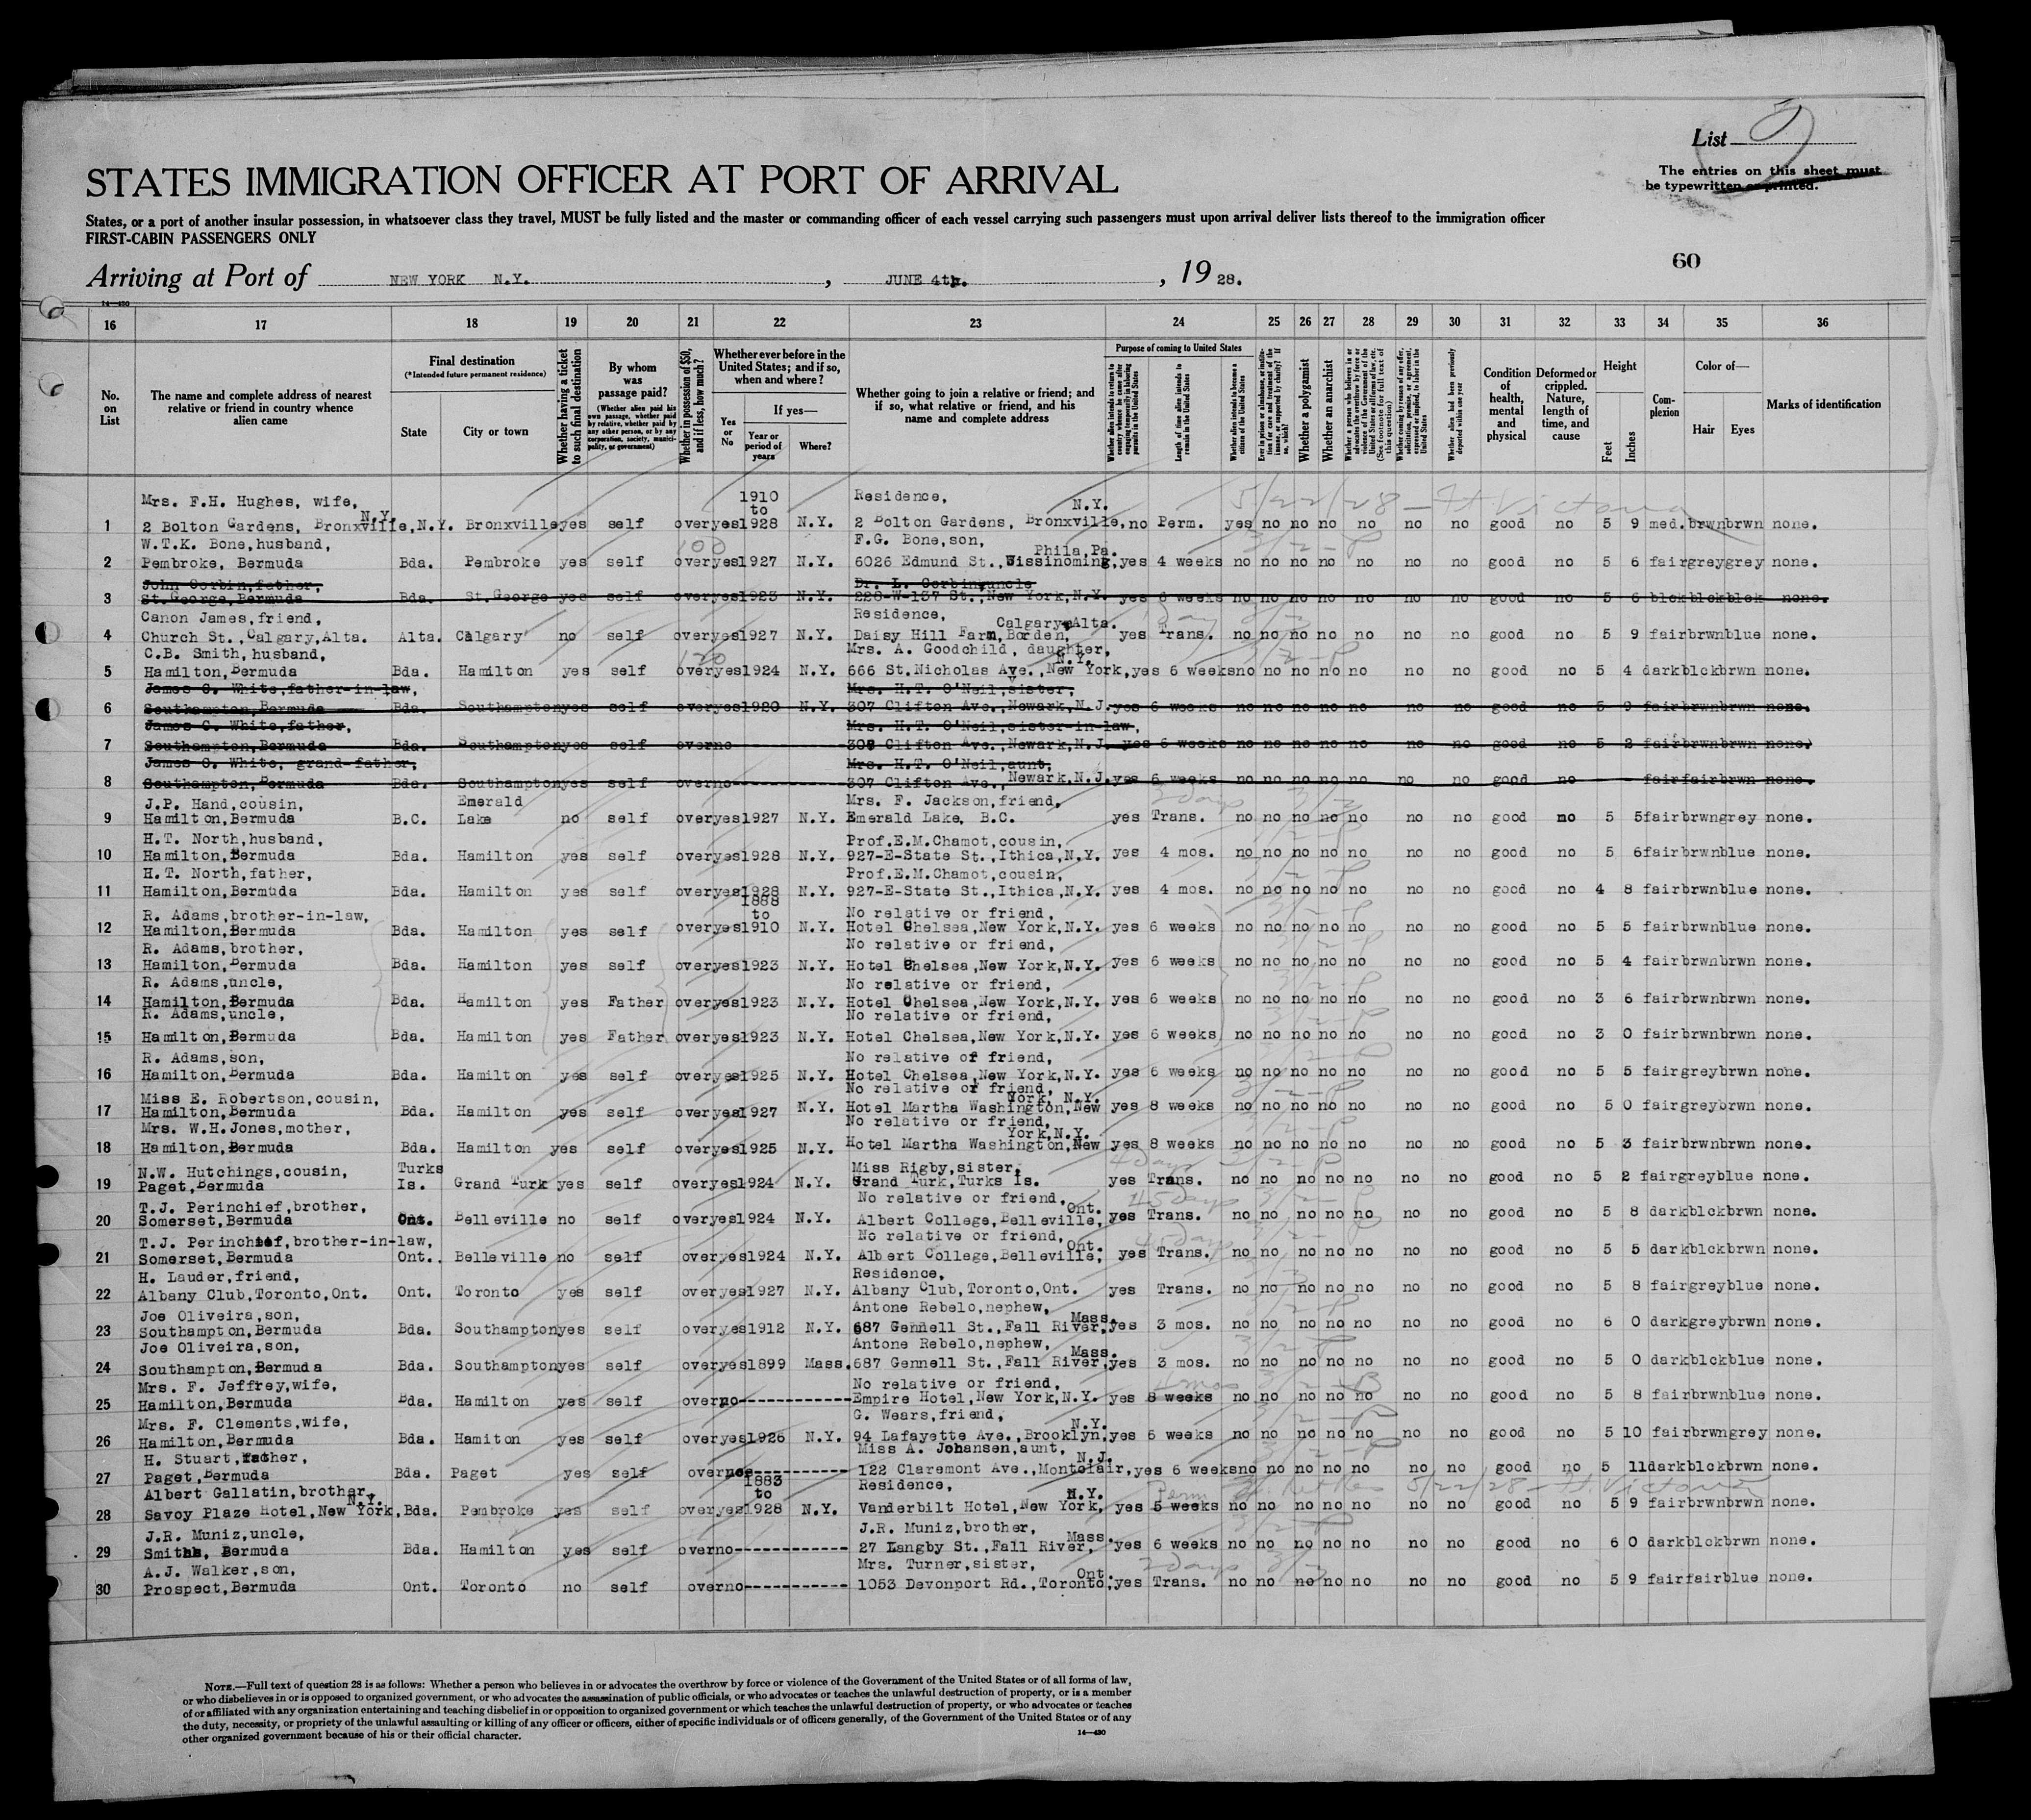 List
The entries on this sheet must
be typewritten or printed.
STATES IMMIGRATION OFFICER AT PORT OF ARRIVAL
States, or a port of another insular possession, in whatsoever class they travel, MUST be fully listed and the master or commanding officer of each vessel carrying such passengers must upon arrival deliver lists thereof to the immigration officer
FIRST-CABIN PASSENGERS ONLY
60
Arriving at Port of NEW YORK N.Y. , JUNE 4th. , 19 28.
14—430
16 17 18 19 20 21 22 23 24 25 26 27 28 29 30 31 32 33 34 35 36
No. on List
The name and complete address of nearest relative or friend in country whence alien came
Final destination
(*Intended future permanent residence)
State
City or town
Whether having a ticket to such final destination
By whom was passage paid?
(Whether alien paid his own passage, whether paid by relative, whether paid by any other person, or by any corporation, society, municipality, or government)
Whether in possession of $50, and if less, how much?
Whether ever before in the United States; and if so, when and where?
Yes or No
If yes—
Year or period of years
Where?
Whether going to join a relative or friend; and if so, what relative or friend, and his name and complete address
Purpose of coming to United States
Whether alien intends to return to country whence he came after engaging temporarily in laboring pursuits in the United States
Length of time alien intends to remain in the United States
Whether alien intends to become a citizen of the United States
Ever in prison or almshouse, or institution for care and treatment of the insane, or supported by charity? If so, which?
Whether a polygamist
Whether an anarchist
Whether a person who believes in or advocates the overthrow by force or violence of the Government of the United States or all forms of law, etc. (See footnote for full text of this question)
Whether coming by reason of any offer, solicitation, promise, or agreement, expressed or implied, to labor in the United States
Whether alien had been previously deported within one year
Condition of health, mental and physical
Deformed or crippled. Nature, length of time, and cause
Height
Feet
Inches
Complexion
Color of—
Hair
Eyes
Marks of identification
Mrs. F.H. Hughes, wife, 1910 Residence, 5/22/28 – Ft Victoria
N.Y. to N.Y.
1 2 Bolton Gardens, Bronxville, N.Y. Bronxville yes self over yes 1928 N.Y. 2 Bolton Gardens, Bronxville, no Perm. yes no no no no no no good no 5 9 med. brwn brwn none.
W.T.K. Bone, husband, 100 F.G. Bone, son, 3/2-P
Phila, Pa.
2 Pembroke, Bermuda Bda. Pembroke yes self over yes 1927 N.Y. 6026 Edmund St., Wissinoming, yes 4 weeks no no no no no no no good no 5 6 fair grey grey none.
John Corbin, father, Dr. L. Corbin, uncle
3 St. George, Bermuda Bda. St. George yes self over yes 1923 N.Y. 228-W-137 St., New York, N.Y. yes 6 weeks no no no no no no no good no 5 6 blck blck blck none.
Canon James, friend, Residence,
Calgary, Alta.
4 Church St., Calgary, Alta. Alta. Calgary no self over yes 1927 N.Y. Daisy Hill Farm, Borden, yes Trans. no no no no no no no good no 5 9 fair brwn blue none.
C.B. Smith, husband, 120 Mrs. A. Goodchild, daughter, 3/2-P
N.Y.
5 Hamilton, Bermuda Bda. Hamilton yes self over yes 1924 N.Y. 666 St. Nicholas Ave., New York, yes 6 weeks no no no no no no no good no 5 4 dark blck brwn none.
James C. White, father-in-law, Mrs. H.T. O'Neil, sister,
6 Southampton, Bermuda Bda. Southampton yes self over yes 1920 N.Y. 307 Clifton Ave., Newark, N.J. yes 6 weeks no no no no no no no good no 5 9 fair brwn brwn none.
James C. White, father, Mrs. H.T. O'Neil, sister-in-law,
7 Southampton, Bermuda Bda. Southampton yes self over no ---------- 308 Clifton Ave., Newark, N.J. yes 6 weeks no no no no no no no good no 5 2 fair brwn brwn none.
James C. White, grand-father, Mrs. H.T. O'Neil, aunt,
8 Southampton, Bermuda Bda. Southampton yes self over no ---------- 307 Clifton Ave., Newark, N.J. yes 6 weeks no no no no no no no good no fair fair brwn none.
J.P. Hand, cousin, Emerald Mrs. F. Jackson, friend, 3 days
9 Hamilton, Bermuda B.C. Lake no self over yes 1927 N.Y. Emerald Lake, B.C. yes Trans. no no no no no no no good no 5 5 fair brwn grey none.
H.T. North, husband, Prof. E.M. Chamot, cousin,
10 Hamilton, Bermuda Bda. Hamilton yes self over yes 1928 N.Y. 927-E-State St., Ithica, N.Y. yes 4 mos. no no no no no no no good no 5 6 fair brwn blue none.
H.T. North, father, Prof. E.M. Chamot, cousin,
11 Hamilton, Bermuda Bda. Hamilton yes self over yes 1928 N.Y. 927-E-State St., Ithica, N.Y. yes 4 mos. no no no no no no no good no 4 8 fair brwn blue none.
1888
R. Adams, brother-in-law, to No relative or friend,
12 Hamilton, Bermuda Bda. Hamilton yes self over yes 1910 N.Y. Hotel Chelsea, New York, N.Y. yes 6 weeks no no no no no no no good no 5 5 fair brwn blue none.
R. Adams, brother, No relative or friend,
13 Hamilton, Bermuda Bda. Hamilton yes self over yes 1923 N.Y. Hotel Chelsea, New York, N.Y. yes 6 weeks no no no no no no no good no 5 4 fair brwn brwn none.
R. Adams, uncle, No relative or friend,
14 Hamilton, Bermuda Bda. Hamilton yes Father over yes 1923 N.Y. Hotel Chelsea, New York, N.Y. yes 6 weeks no no no no no no no good no 3 6 fair brwn brwn none.
R. Adams, uncle, No relative or friend,
15 Hamilton, Bermuda Bda. Hamilton yes Father over yes 1923 N.Y. Hotel Chelsea, New York, N.Y. yes 6 weeks no no no no no no no good no 3 0 fair brwn brwn none.
R. Adams, son, No relative of friend,
16 Hamilton, Bermuda Bda. Hamilton yes self over yes 1925 N.Y. Hotel Chelsea, New York, N.Y. yes 6 weeks no no no no no no no good no 5 5 fair grey brwn none.
Miss E. Robertson, cousin, No relative or friend, 3/2-P
York, N.Y.
17 Hamilton, Bermuda Bda. Hamilton yes self over yes 1927 N.Y. Hotel Martha Washington, New yes 8 weeks no no no no no no no good no 5 0 fair grey brwn none.
Mrs. W.H. Jones, mother, No relative or friend,
York, N.Y.
18 Hamilton, Bermuda Bda. Hamilton yes self over yes 1925 N.Y. Hotel Martha Washington, New yes 8 weeks no no no no no no no good no 5 3 fair brwn brwn none.
N.W. Hutchings, cousin, Turks Miss Rigby, sister, 4 Days 3/2-P
19 Paget, Bermuda Is. Grand Turk yes self over yes 1924 N.Y. Grand Turk, Turks Is. yes Trans. no no no no no no no good no 5 2 fair grey blue none.
T.J. Perinchief, brother, No relative or friend, 45 Days
Ont.
20 Somerset, Bermuda Ont. Belleville no self over yes 1924 N.Y. Albert College, Belleville, yes Trans. no no no no no no no good no 5 8 dark blck brwn none.
T.J. Perinchief, brother-in-law, No relative or friend, 45 Days
Ont.
21 Somerset, Bermuda Ont.. Belleville no self over yes 1924 N.Y. Albert College, Belleville, yes Trans. no no no no no no no good no 5 5 dark blck brwn none.
H. Lauder, friend, Residence,
22 Albany Club, Toronto, Ont. Ont. Toronto yes self over yes 1927 N.Y. Albany Club, Toronto, Ont. yes Trans. no no no no no no no good no 5 8 fair grey blue none.
Joe Oliveira, son, Antone Rebelo, nephew,
Mass.
23 Southampton, Bermuda Bda. Southampton yes self over yes 1912 N.Y. 687 Gennell St., Fall River, yes 3 mos. no no no no no no no good no 6 0 dark grey brwn none.
Joe Oliveira, son, Antone Rebelo, nephew,
Mass.
24 Southampton, Bermuda Bda. Southampton yes self over yes 1899 Mass. 687 Gennell St., Fall River, yes 3 mos. no no no no no no no good no 5 0 dark blck blue none.
Mrs. F. Jeffrey, wife, No relative or friend, 4 mos 3/2-B
25 Hamilton, Bermuda Bda. Hamilton yes self over no ----------- Empire Hotel, New York, N.Y. yes 8 weeks no no no no no no no good no 5 8 fair brwn blue none.
Mrs. F. Clements, wife, G. Wears, friend,
N.Y.
26 Hamilton, Bermuda Bda. Hamiton yes self over yes 1926 N.Y. 94 Lafayette Ave., Brooklyn, yes 5 weeks no no no no no no no good no 5 10 fair brwn grey none.
H. Stuart, father, Miss A. Johansen, aunt, 3/2-P
N.J.
27 Paget, Bermuda Bda. Paget yes self over no ---------- 122 Claremont Ave., Montclair, yes 6 weeks no no no no no no no good no 5 11 dark blck brwn none.
Albert Gallatin, brother, 1883 Residence, Perm 5/22/28 – Ft. Victoria
N.Y. to N.Y.
28 Savoy Plaze Hotel, New York, Bda. Pembroke yes self over yes 1928 N.Y. Vanderbilt Hotel, New York, yes 5 weeks no no no no no no no good no 5 9 fair brwn brwn none.
J.R. Muniz, uncle, J.R. Muniz, brother,
Mass.
29 Smiths, Bermuda Bda. Hamilton yes self over no ----------- 27 Langby St., Fall River, yes 6 weeks no no no no no no no good no 6 0 dark blck brwn none.
A.J. Walker, son, Mrs. Turner, sister, 2 days
Ont.
30 Prospect, Bermuda Ont. Toronto no self over no ---------- 1053 Devonport Rd., Toronto, yes Trans. no no no no no no no good no 5 9 fair fair blue none.
NOTE.—Full text of question 28 is as follows: Whether a person who believes in or advocates the overthrow by force or violence of the Government of the United States or of all forms of law,
or who disbelieves in or is opposed to organized government, or who advocates the assassination of public officials, or who advocates or teaches the unlawful destruction of property, or is a member
of or affiliated with any organization entertaining and teaching disbelief in or opposition to organized government or which teaches the unlawful destruction of property, or who advocates or teaches
the duty, necessity, or propriety of the unlawful assaulting or killing of any officer or officers, either of specific individuals or of officers generally, of the Government of the United States or of any
other organized government because of his or their official character.
14—430